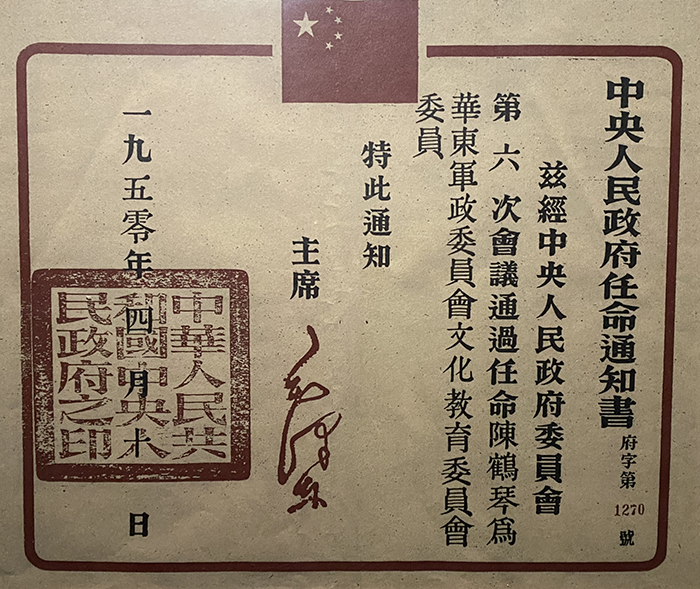 中央人民政府任命通知書 府字第 1270 號
兹經中央人民政府委員會
第六次會議通過任命陳鶴琴爲
華東軍政委員會文化教育委員會
委員
特此通知
主席 毛澤東
一九五零年四月十 日
中華人民共
和國中央人
民政府之印